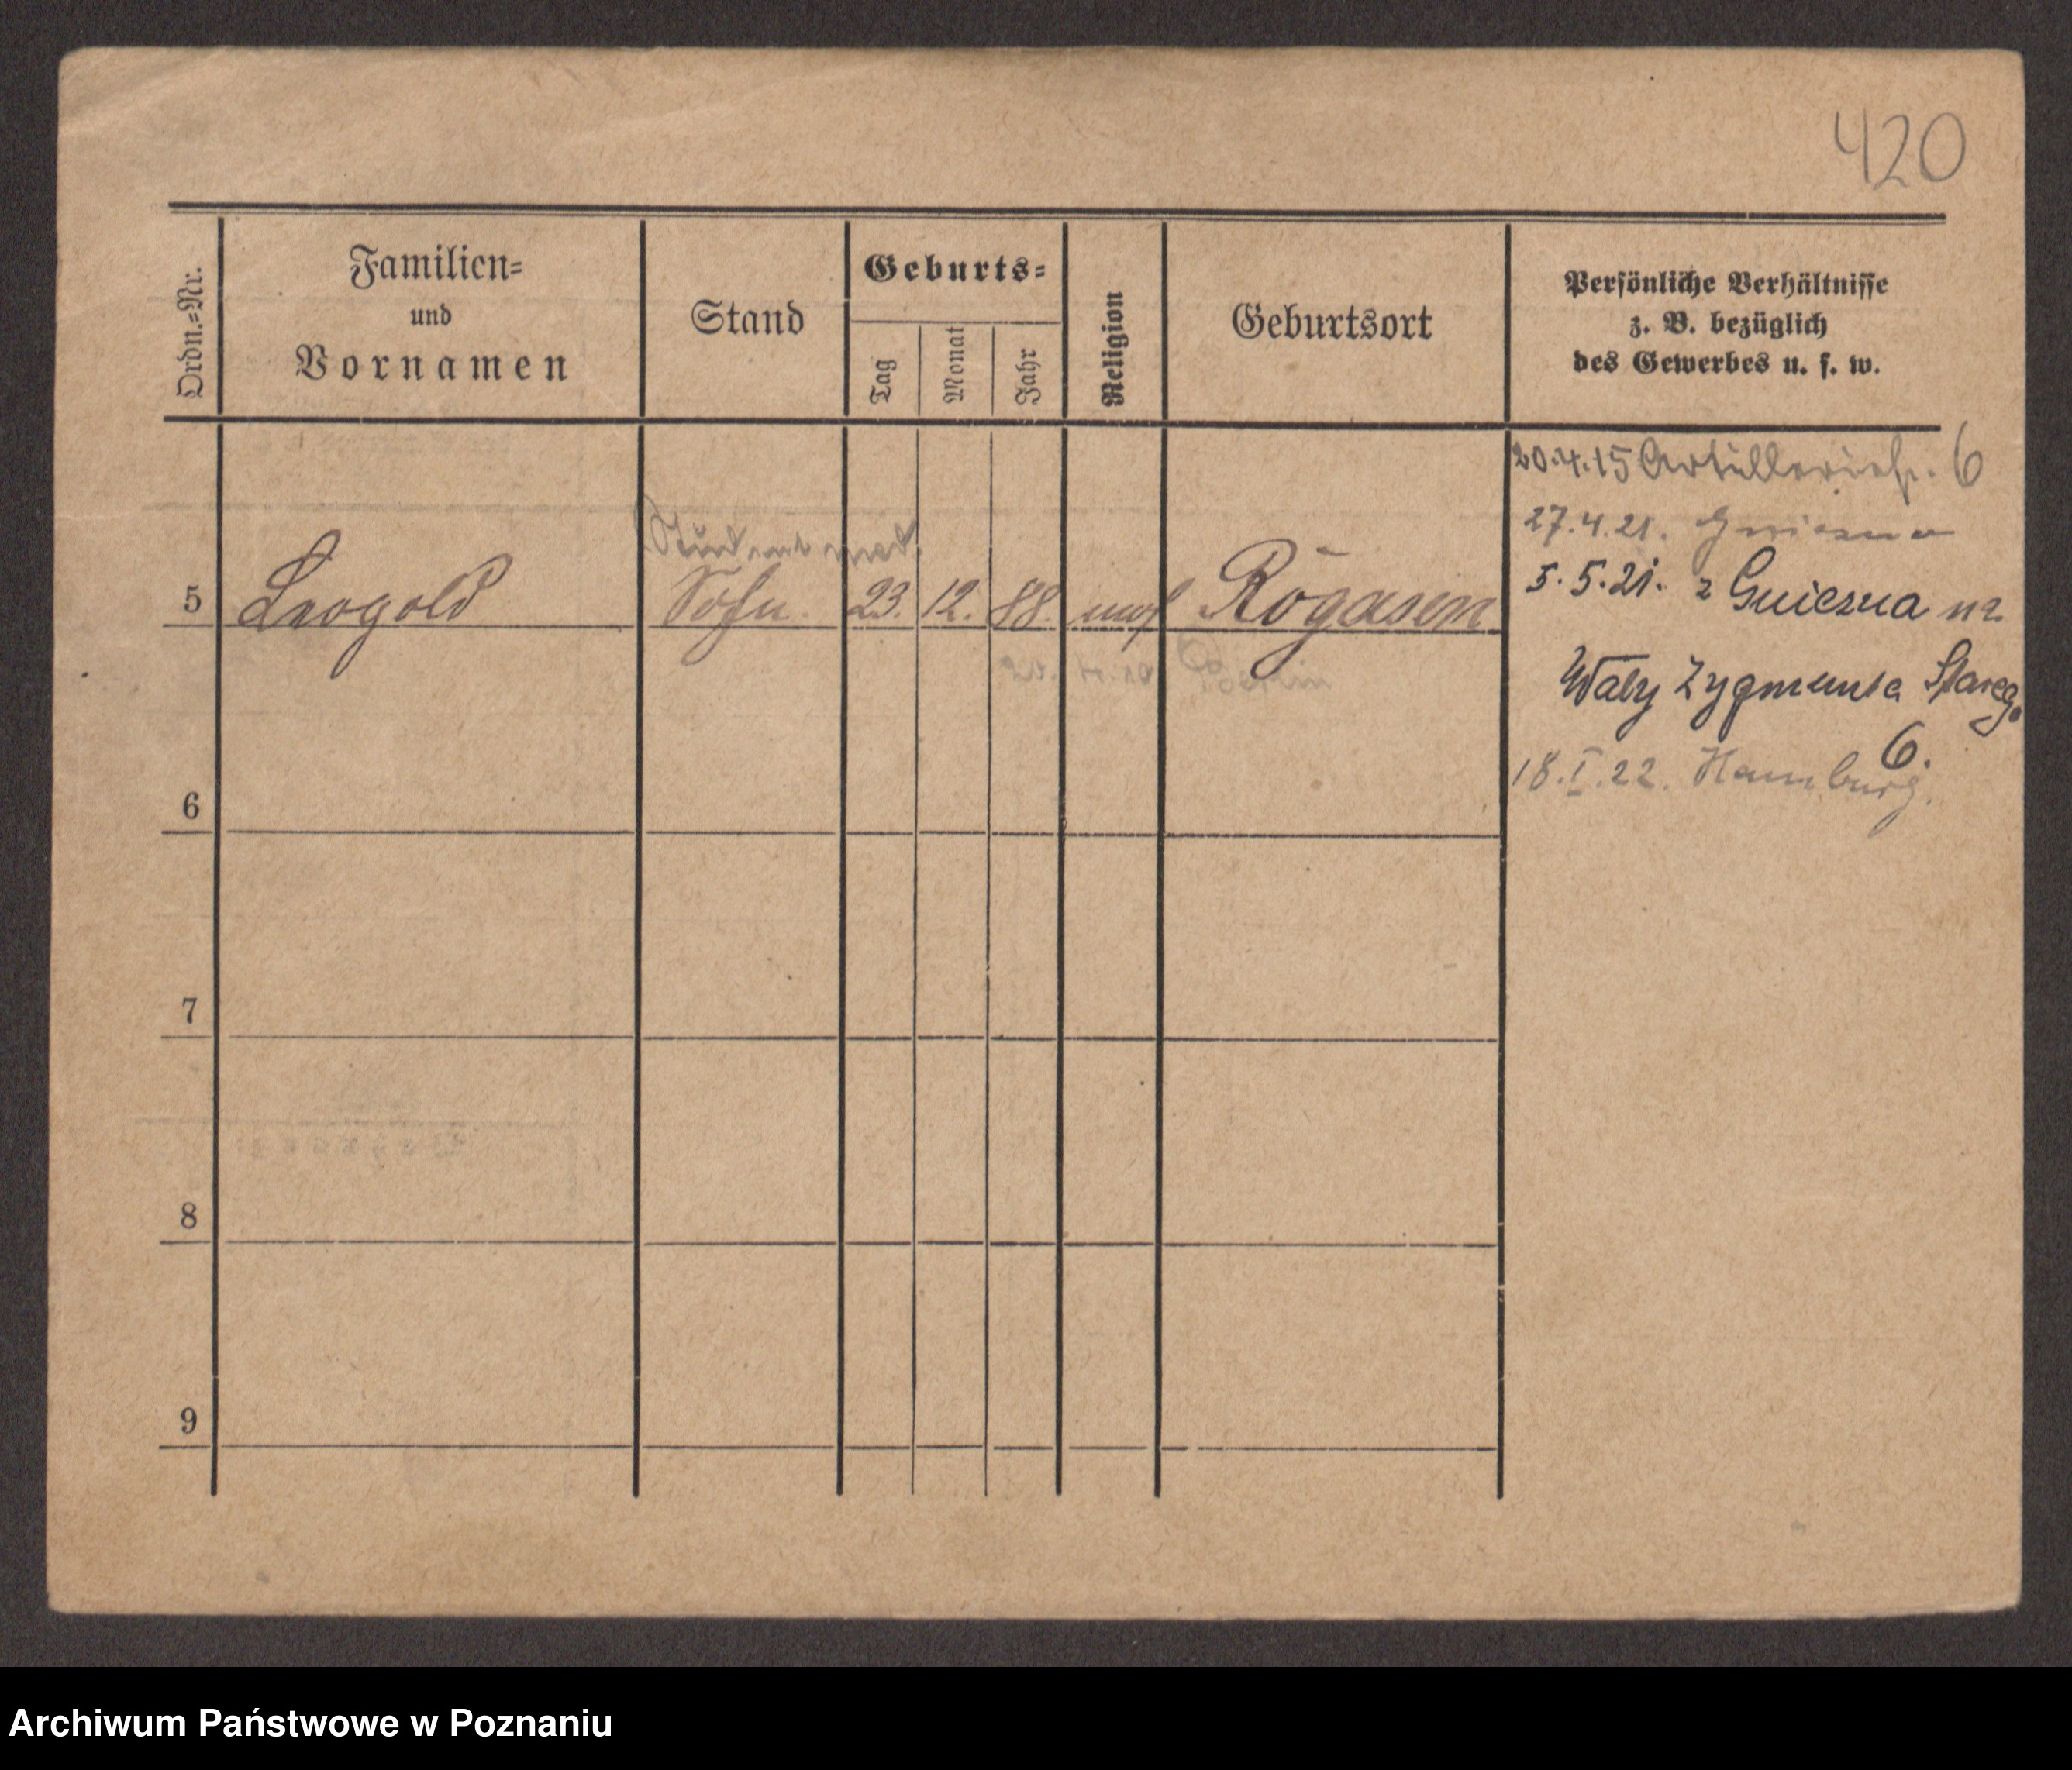 420
Ordn.=Nr.
Familien=
und
Vornamen
Stand
Geburts=
Tag
Monat
Jahr
Religion
Geburtsort
Persönliche Verhältnisse
z. B. bezüglich
des Gewerbes u. s. w.
20.4.15 Artilleriestr. 6
27.4.21. Gniezna
5.5.21. z Gniezna na
Wały Zygmunta Stareg.
6.
18.I.22. Hamburg.
Student med.
5 Leopold Sohn. 23. 12. 88. mos Rogasen
Berlin
6
7
8
9
Archiwum Państwowe w Poznaniu